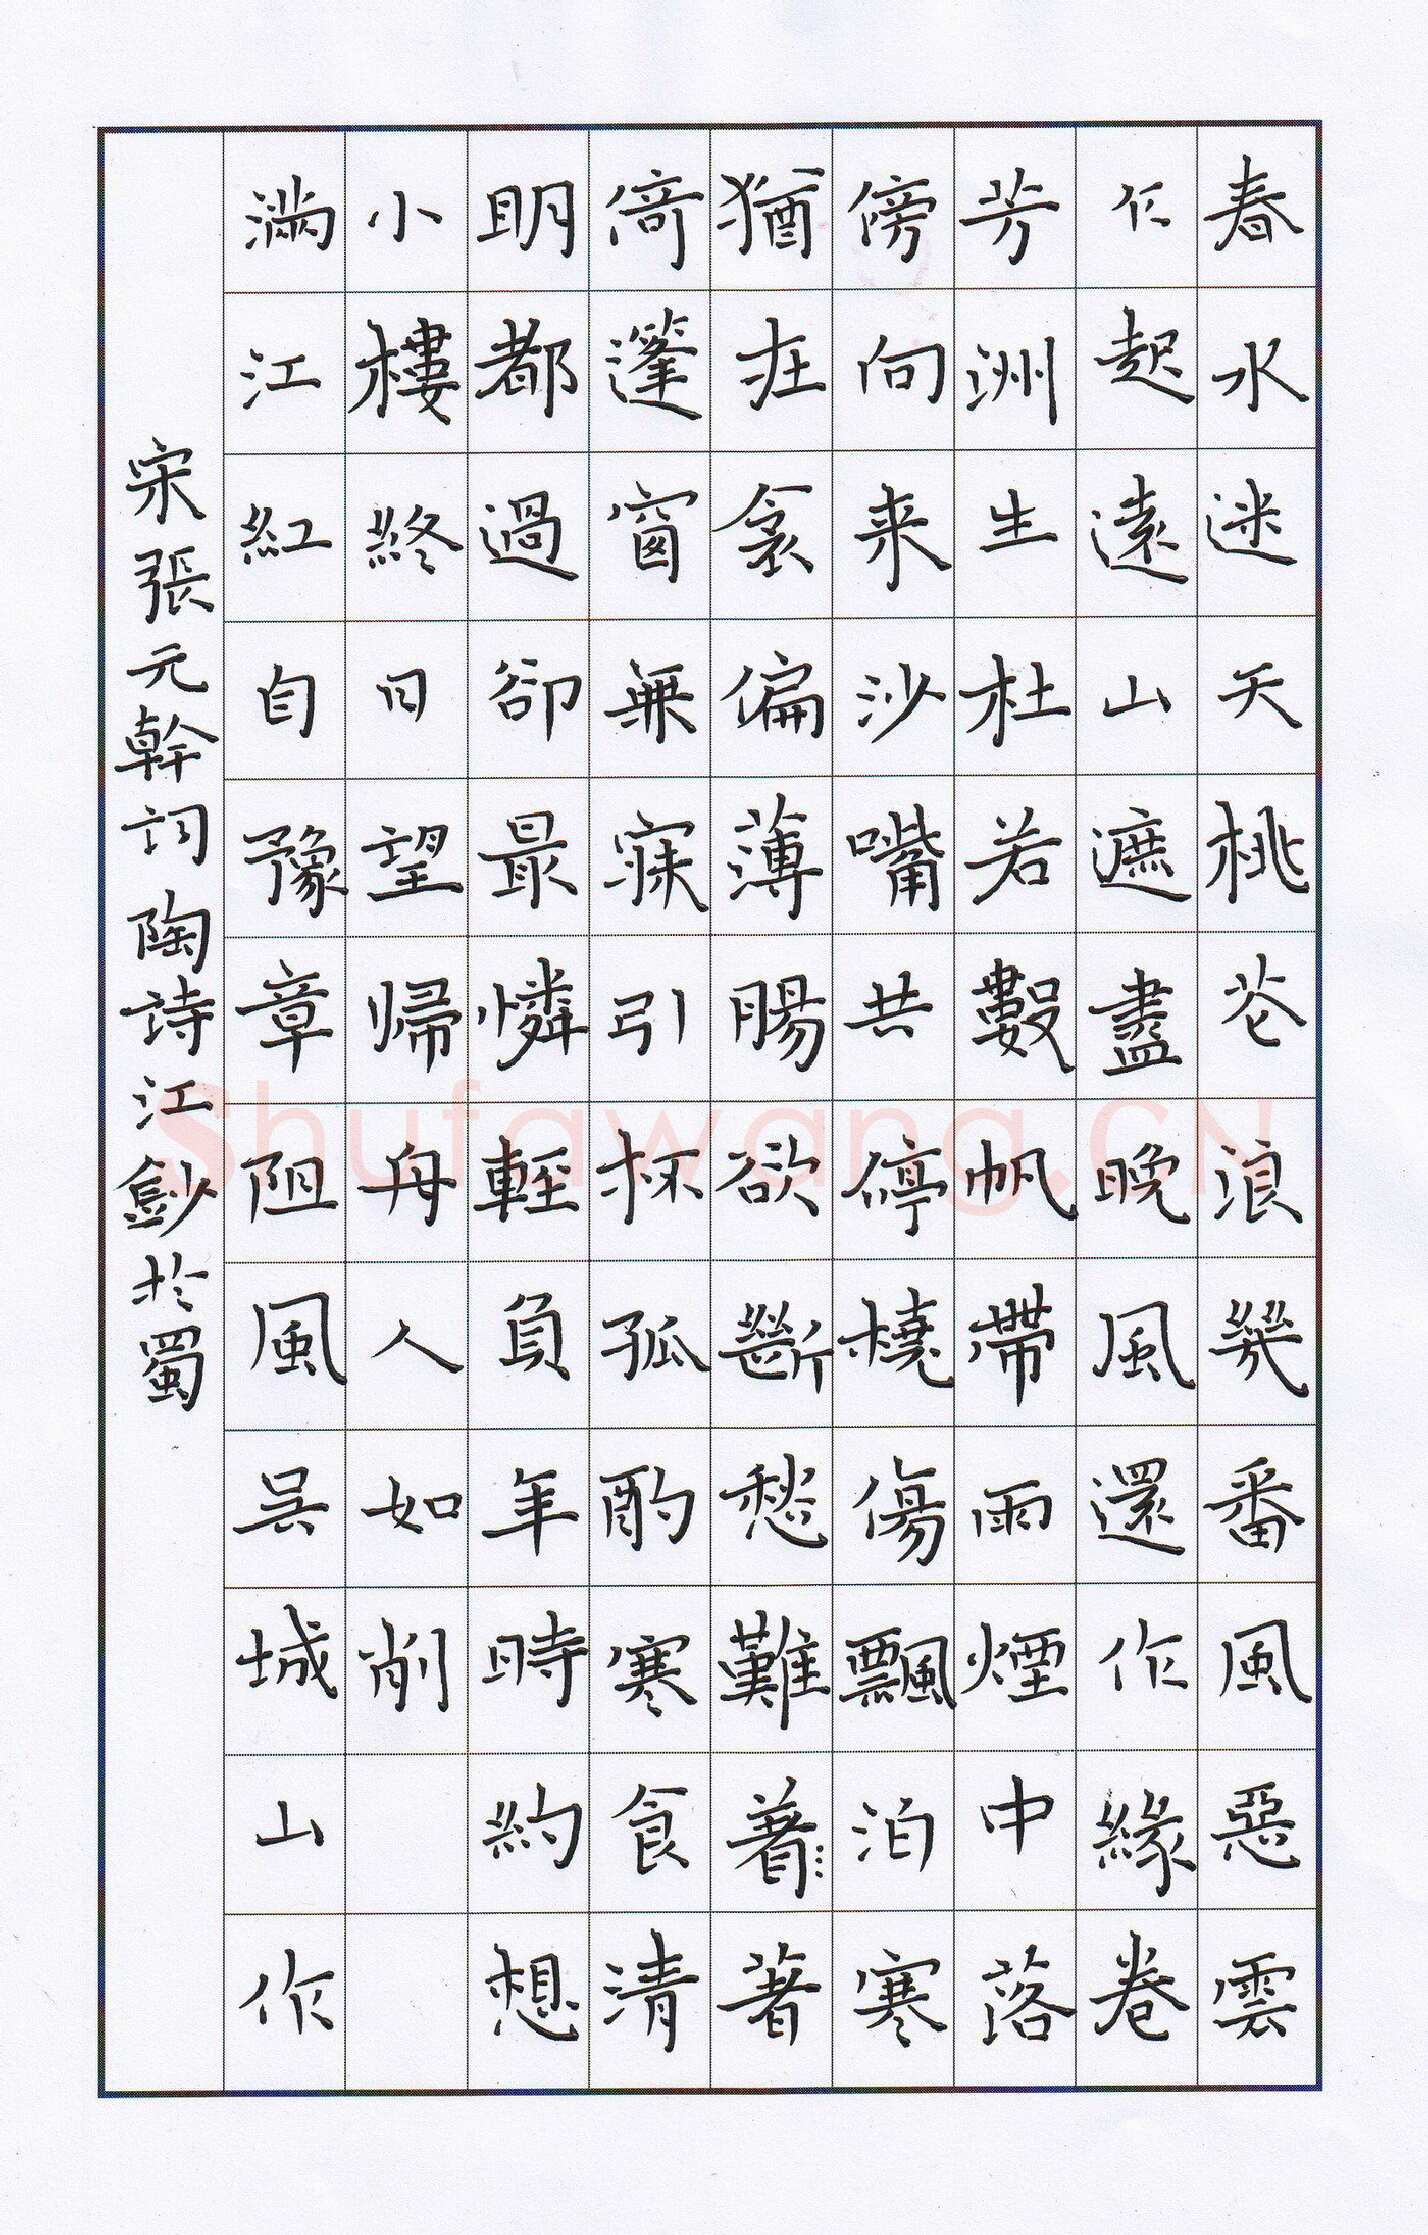 春水迷天桃花浪幾番風惡雲
乍起遠山遮盡晚風還作綠卷
芳洲生杜若數帆帶雨煙中落
傍向来沙嘴共停橈傷飄泊寒
猶在衾偏薄腸欲斷愁難著著
倚篷窗無寐引杯孤酌寒食清
明都過卻最憐輕負年時約想
小樓終日望歸舟人如削
滿江紅自豫章阻風吳城山作
宋張元幹詞陶詩江鈔於蜀
Shufawang.CN